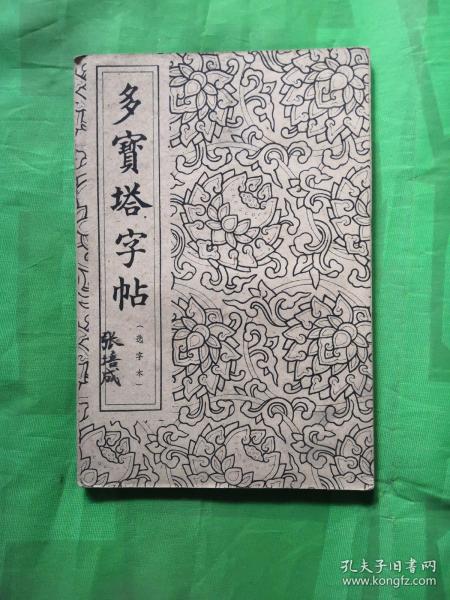 多寶塔字帖
（选字本）
张培成
孔夫子旧书网
www.kongfz.com